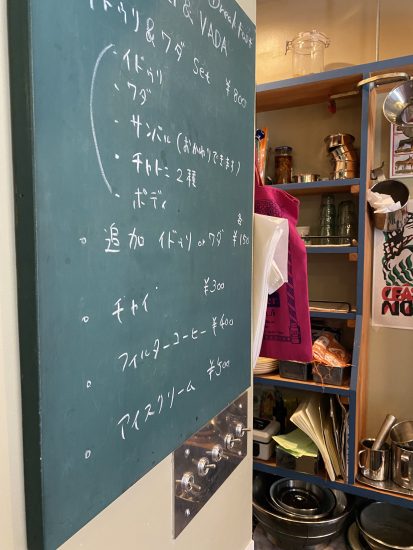 & VADA
イドゥリ & ワダ Set ¥800
・イドゥリ
・ワダ
・サンバル（おかわりできます）
・チャトニ2種
・ポディ
・追加 イドゥリ or ワダ 各¥150
・チャイ ¥300
・フィルターコーヒー ¥400
・アイスクリーム ¥500